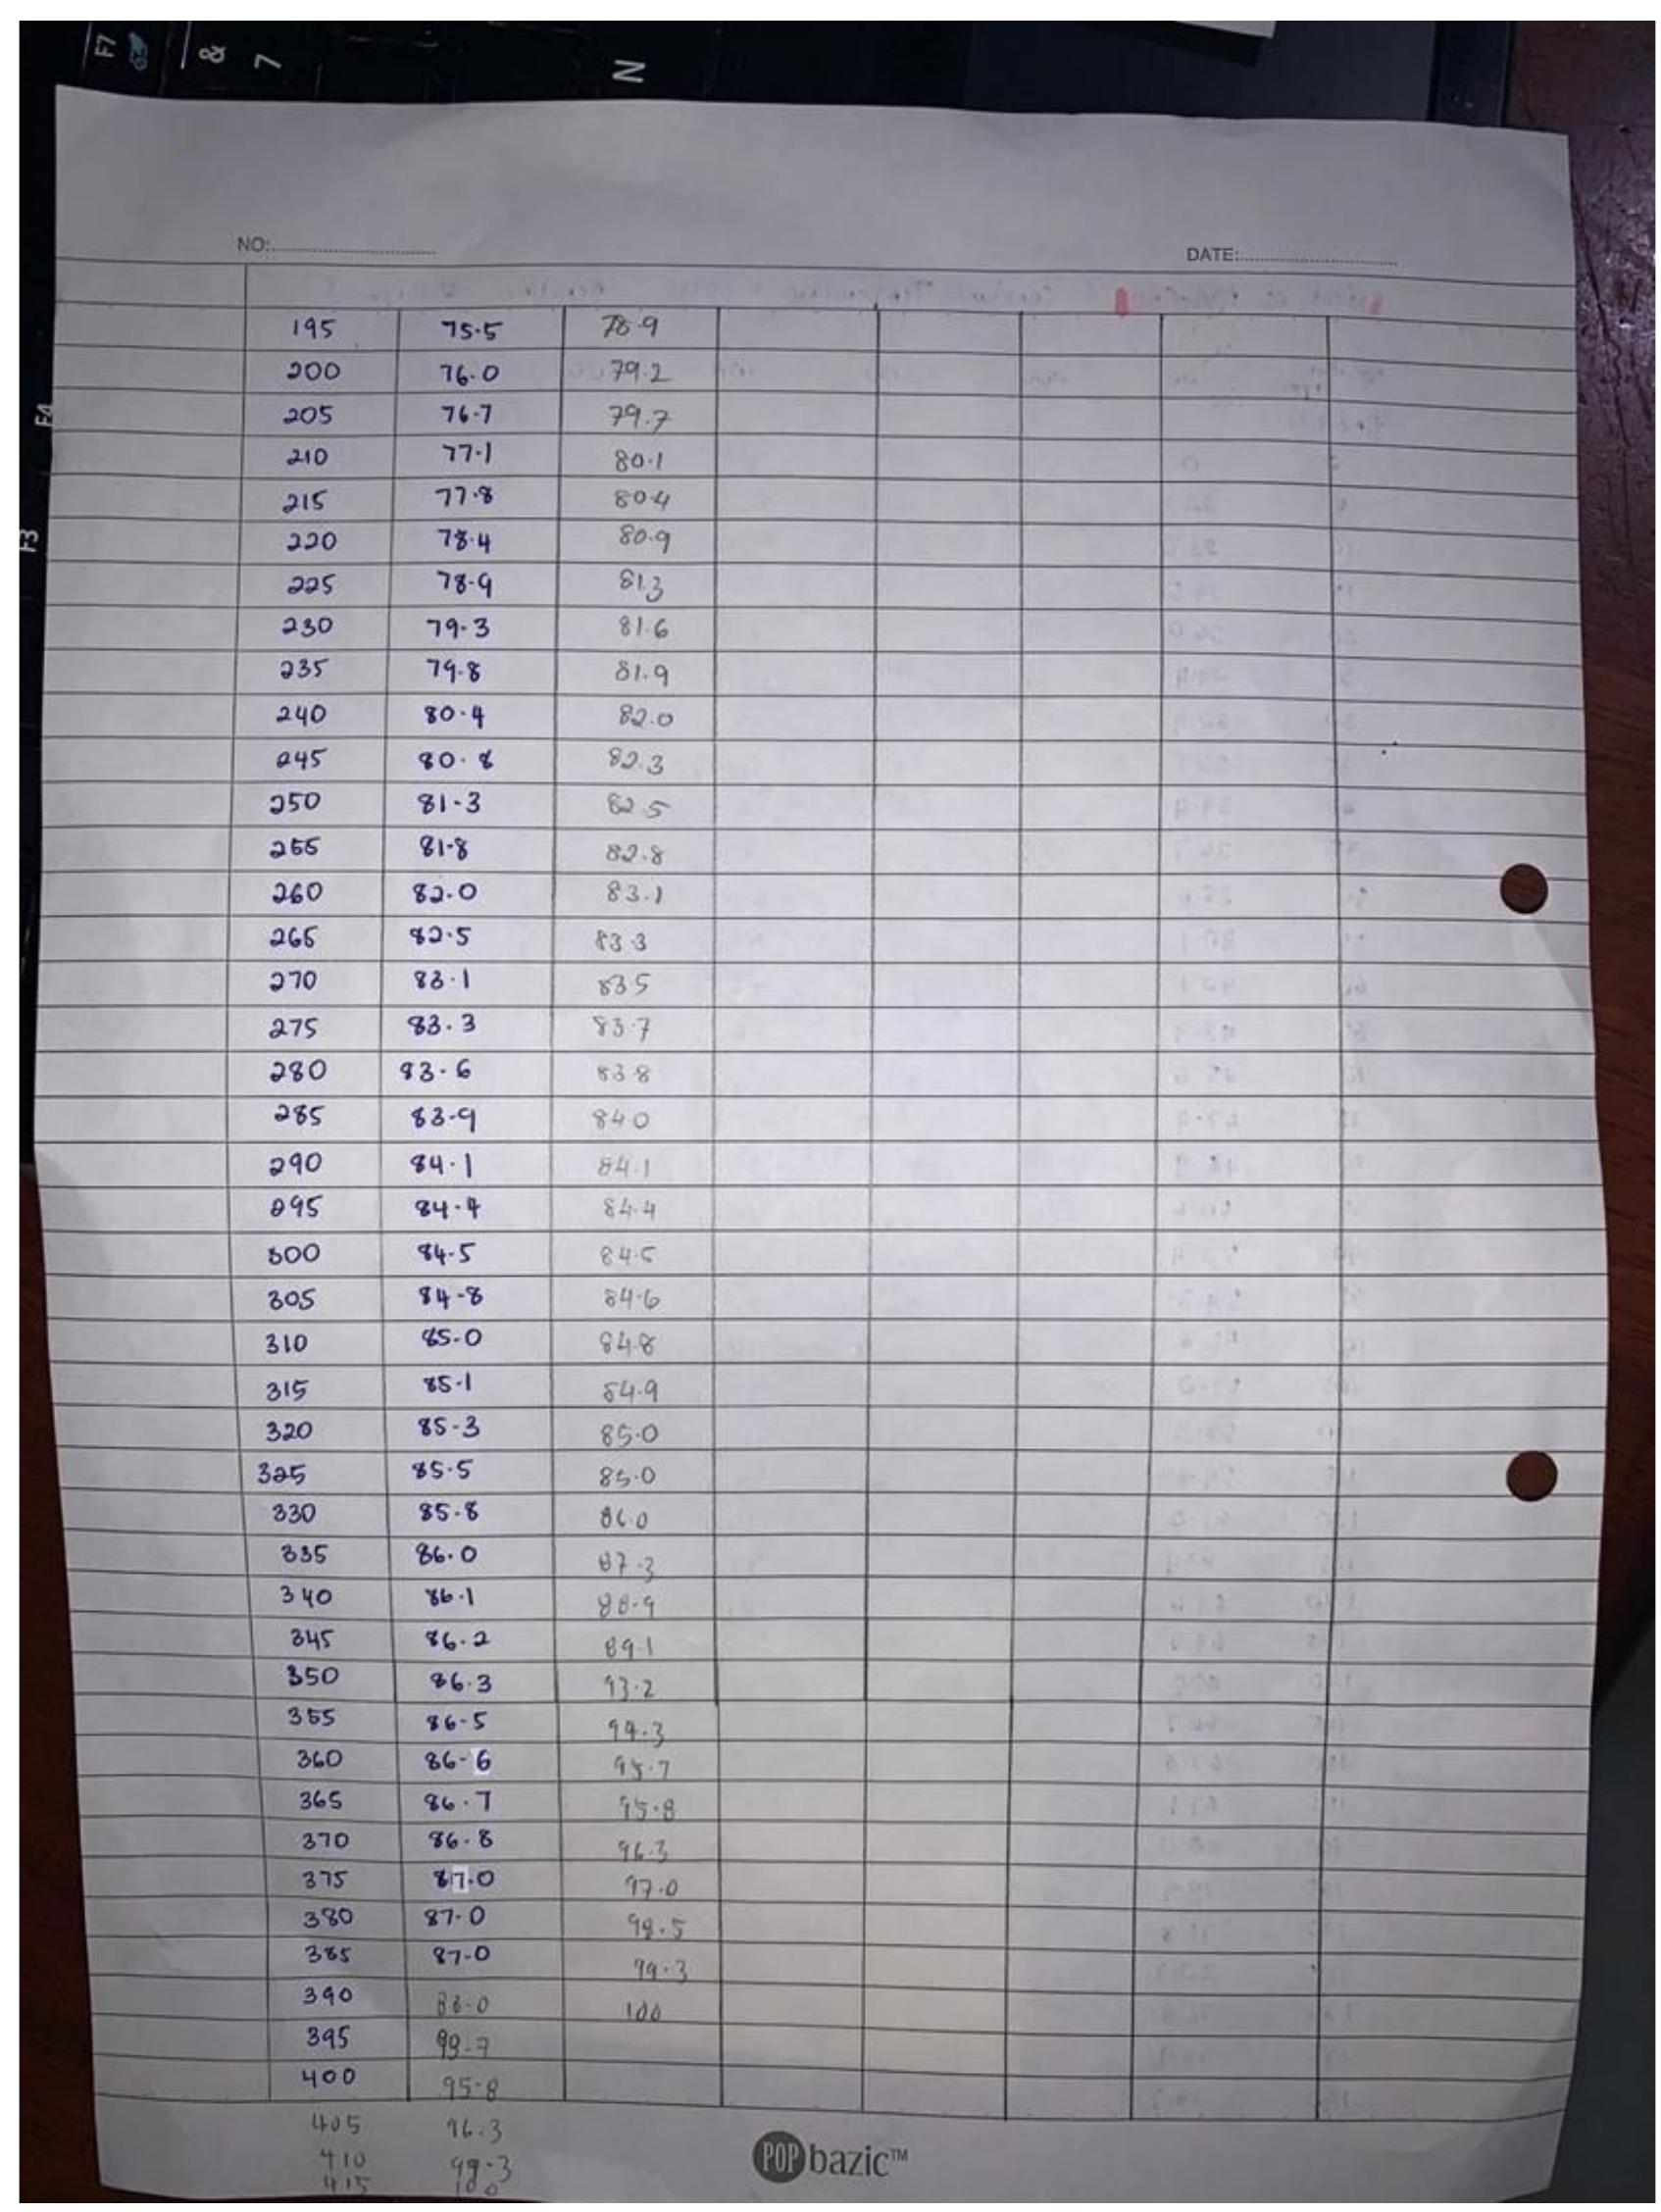 F7 & 7 N
NO:
DATE:
195 75.5 78.9
200 76.0 79.2
F4
205 76.7 79.7
210 77.1 80.1
215 77.8 80.4
F3
220 78.4 80.9
225 78.9 81.3
230 79.3 81.6
235 79.8 81.9
240 80.4 82.0
245 80.8 82.3
250 81.3 82.5
255 81.8 82.8
260 82.0 83.1
265 82.5 83.3
270 83.1 83.5
275 83.3 83.7
280 83.6 83.8
285 83.9 84.0
290 84.1 84.1
295 84.4 84.4
300 84.5 84.5
305 84.8 84.6
310 85.0 84.8
315 85.1 84.9
320 85.3 85.0
325 85.5 85.0
330 85.8 86.0
335 86.0 87.3
340 86.1 88.9
345 86.2 89.1
350 86.3 93.2
355 86.5 94.3
360 86.6 95.7
365 86.7 95.8
370 86.8 96.3
375 87.0 97.0
380 87.0 98.5
385 87.0 99.3
390 88.0 100
395
400 95.8
405 96.3
410 99.3
415 100
POP bazic™